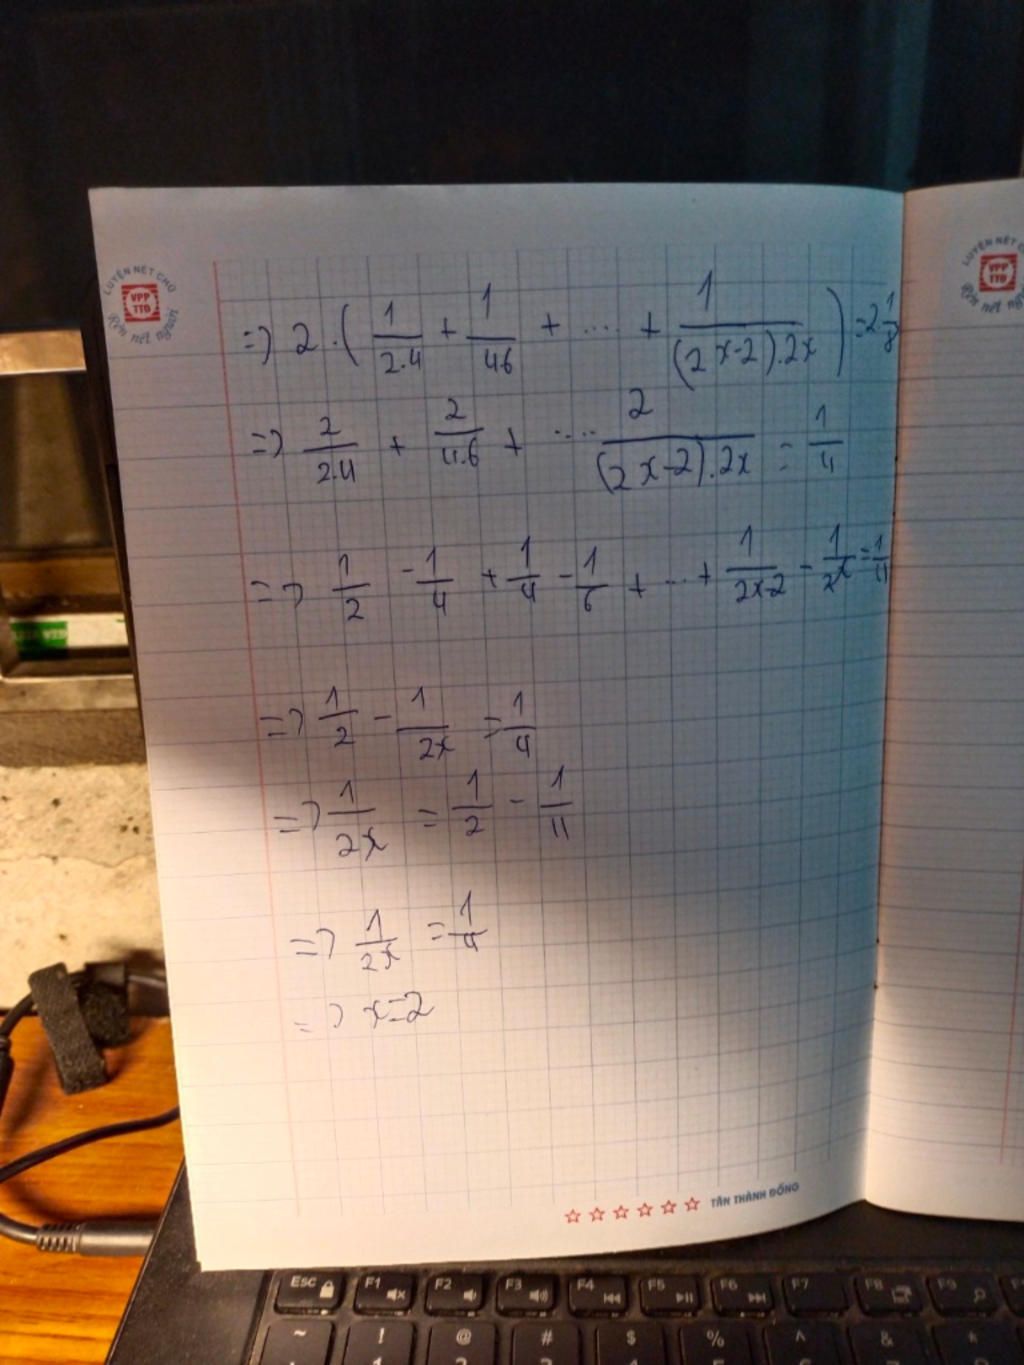 LUYỆN NÉT CHỮ
VPP
TTĐ
Rèn nết người
LUYỆN NÉT CHỮ
VPP
TTĐ
Rèn nết
=> 2 . ( 1/2.4 + 1/4.6 + .... + 1/(2x-2).2x ) = 2.1/8
=> 2/2.4 + 2/4.6 + .... 2/(2x-2).2x = 1/4
=> 1/2 - 1/4 + 1/4 - 1/6 + ... + 1/2x-2 - 1/2x = 1/4
=> 1/2 - 1/2x = 1/4
=> 1/2x = 1/2 - 1/4
=> 1/2x = 1/4
=> x = 2
☆ ☆ ☆ ☆ ☆ ☆ TÂN THÀNH ĐỒNG
Esc F1 F2 F3 F4 F5 F6 F7 F8 F9
~ ! @ # $ % ^ & *